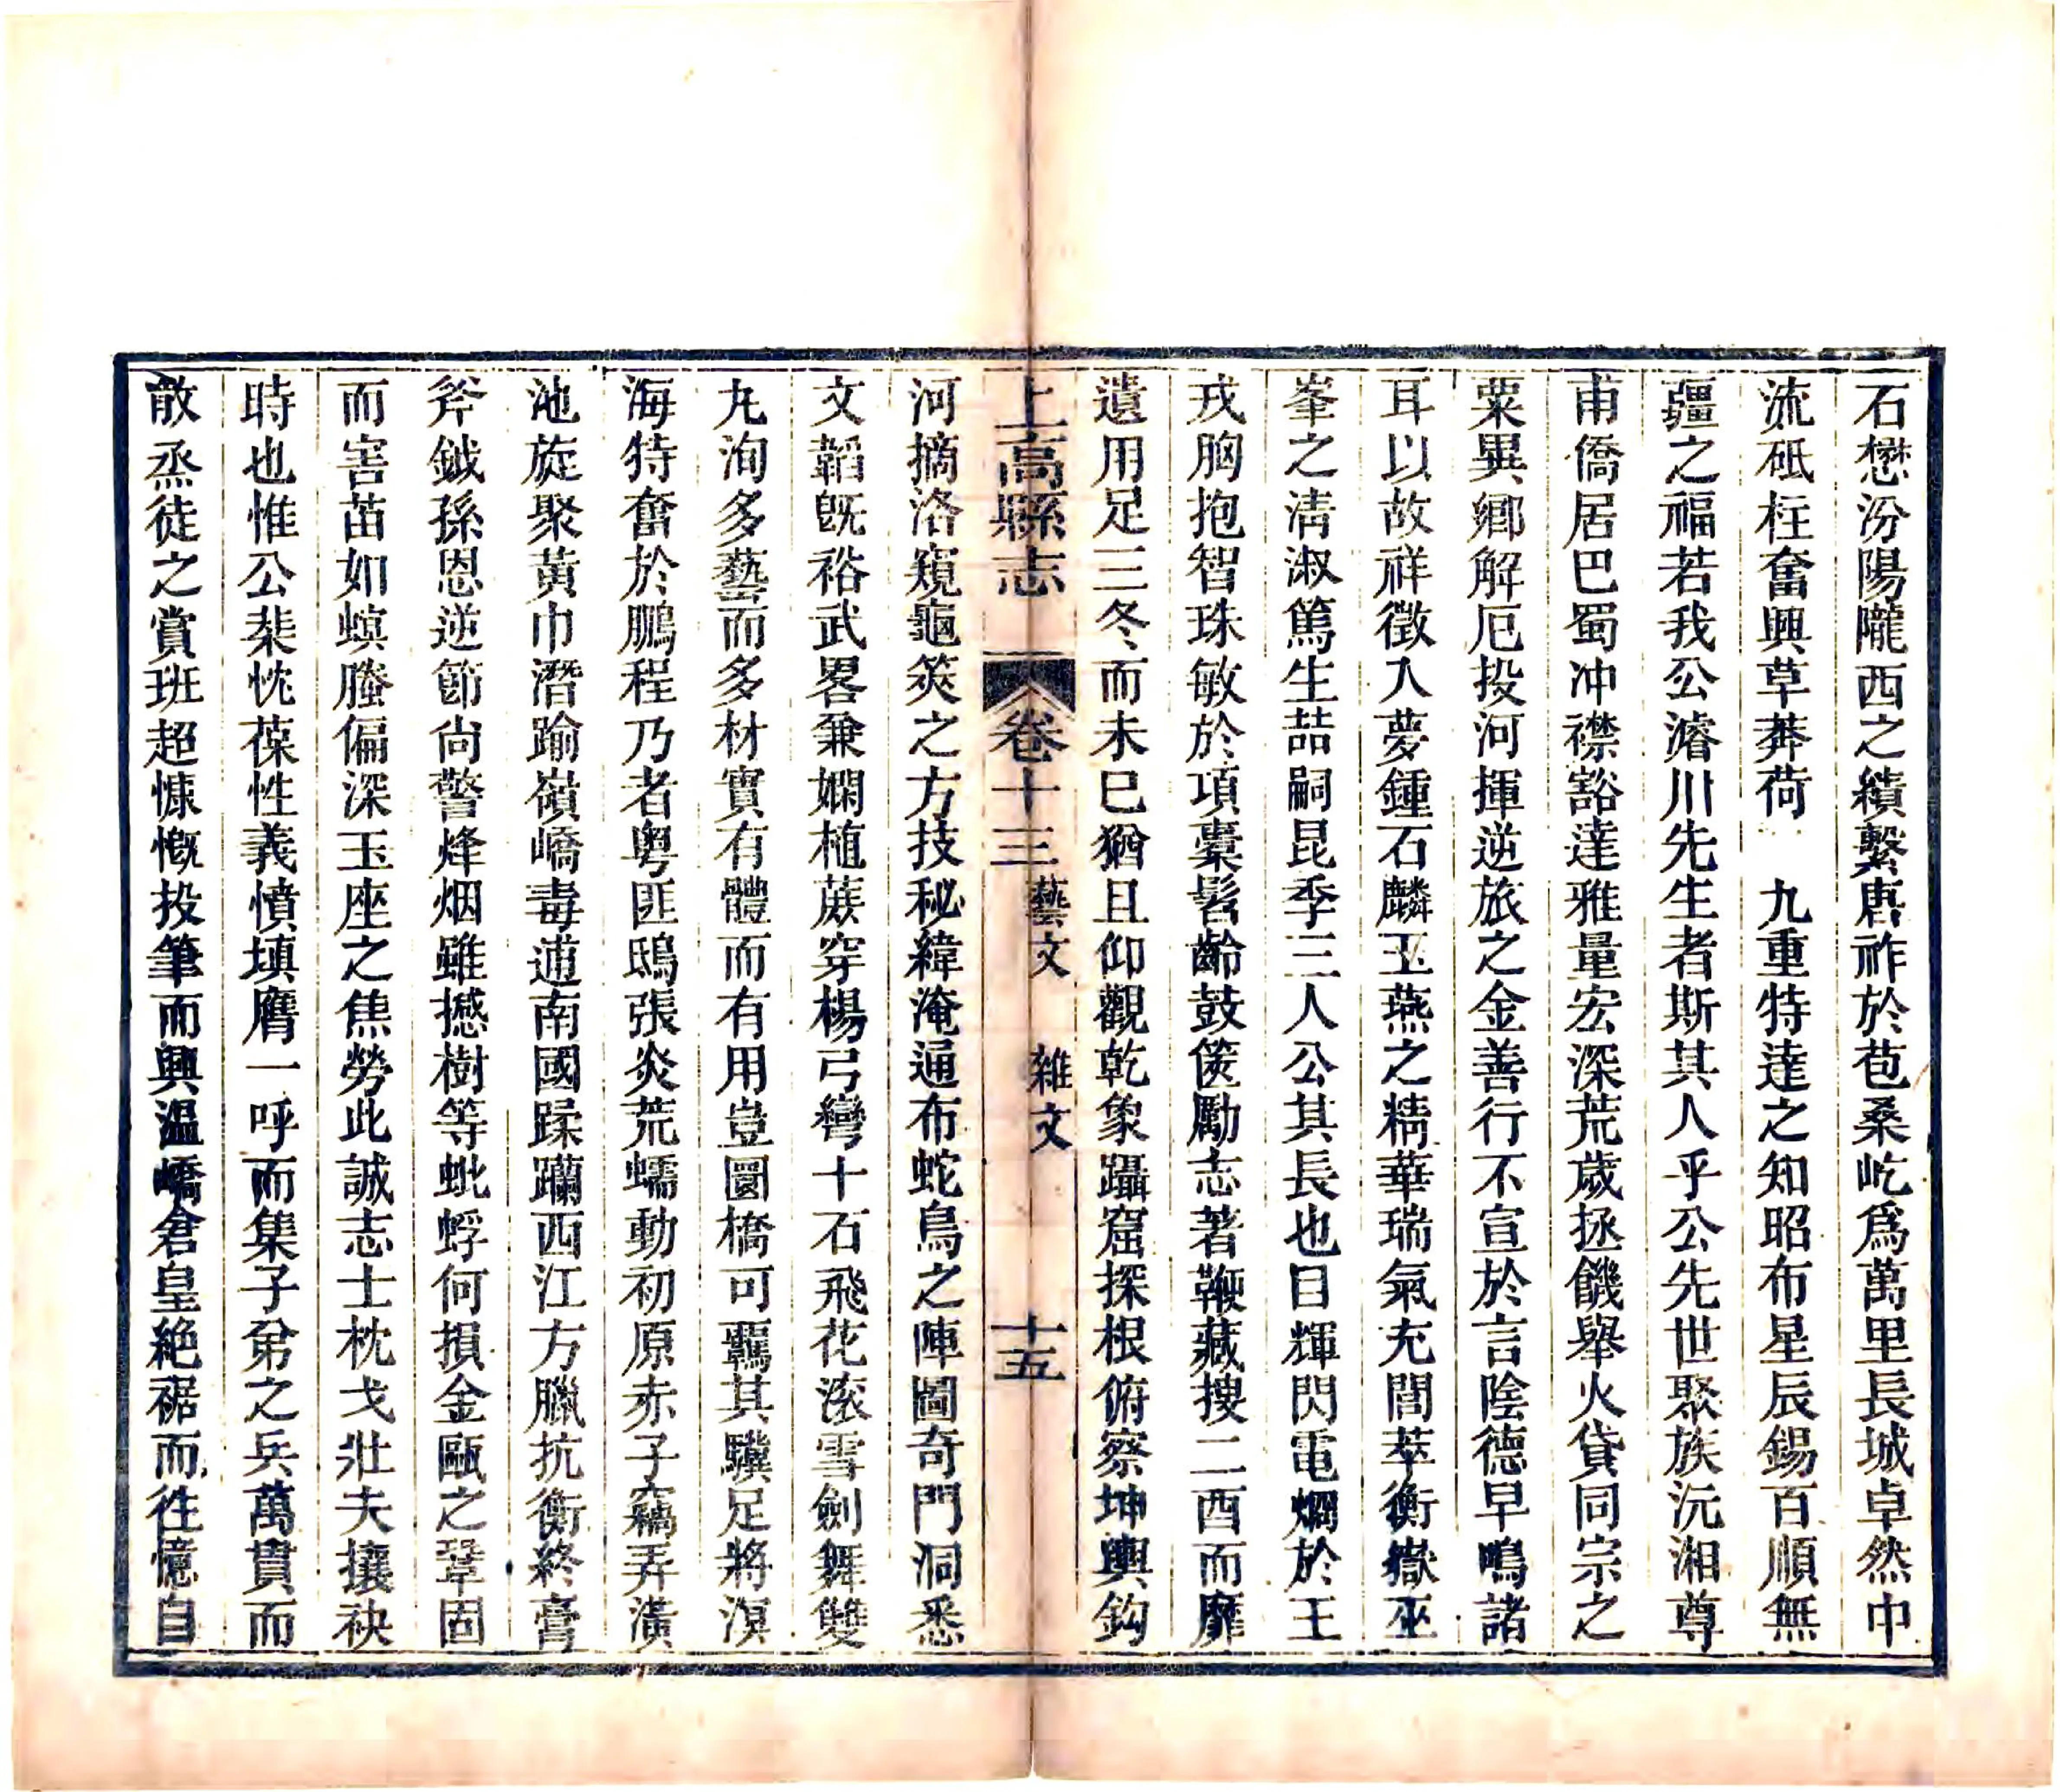 石懋汾陽隴西之績繫唐祚於苞桑屹爲萬里長城卓然中
流砥柱奮興草莽荷　九重特達之知昭布星辰錫百順無
疆之福若我公濬川先生者斯其人乎公先世聚族沅湘尊
甫僑居巴蜀冲襟豁達雅量宏深荒歲拯饑舉火貸同宗之
粟異鄉解厄投河揮逆旅之金善行不宣於言陰德早鳴諸
耳以故祥徵入夢鍾石麟玉燕之精華瑞氣充閭萃衡嶽巫
峯之淸淑篤生喆嗣昆季三人公其長也目輝閃電爛於王
戎胸抱智珠敏於項橐髫齡鼓篋勵志著鞭藏搜二酉而靡
遺用足三冬而未巳猶且仰觀乾象躡窟探根俯察坤輿鈎
上高縣志　卷十三　藝文　雜文　十五
河摘洛窺龜筴之方技秘緯淹通布蛇鳥之陣圖奇門洞悉
文韜旣裕武畧兼嫻植蕨穿楊弓彎十石飛花滚雪劍舞雙
丸洵多藝而多材實有體而有用豈圜橋可羈其驥足將溟
海特奮於鵬程乃者粤匪鴟張炎荒蠕動初原赤子竊弄潢
池旋聚黃巾潛踰嶺嶠毒逋南國蹂躪西江方臘抗衡終膏
斧鉞孫恩逆節尙警烽烟雖撼樹等蚍蜉何損金甌之鞏固
而害苗如螟螣偏深玉座之焦勞此誠志士枕戈壯夫攘袂
時也惟公棐忱葆性義憤塡膺一呼而集子弟之兵萬貫而
散烝徒之賞班超慷慨投筆而興溫嶠倉皇絶裾而徃憶自